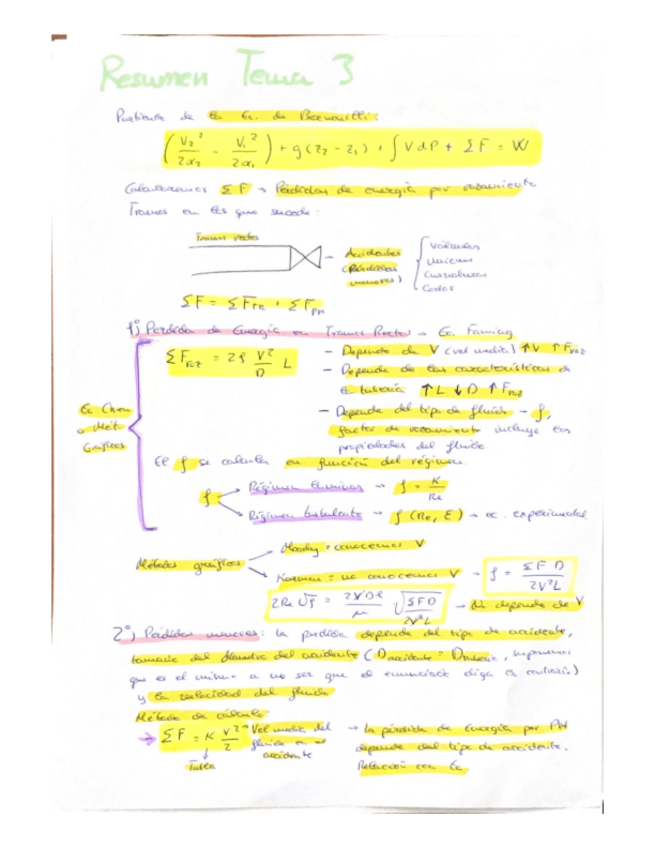 Resumen Tema 3
Partiendo de la Ec. de Bernouilli:
(V₂²/2α₂ - V₁²/2α₁) + g(z₂ - z₁) + ∫VdP + ΣF = W
Calcularemos ΣF → Pérdidas de energía por rozamiento
Tramos en los que sucede:
Tramos rectos
Accidentes (Pérdidas menores)
Válvulas
Uniones
Curvaturas
Codos
ΣF = ΣF_TR + ΣF_PM
1º) Perdida de Energía en Tramos Rectos → Ec. Fanning
ΣF_roz = 2f V²/D L
- Depende de V (vel media) ↑V ↑F_roz
- Depende de las características de
la tubería ↑L ↓D ↑F_roz
- Depende del tipo de fluido - f,
factor de rozamiento incluye las
propiedades del fluido
Ec Chen
o Mét.
Gráficos
El f se calcula en función del régimen.
f
Régimen laminar → f = K/Re
Régimen turbulento → f (Re, E) → ec. experimental
Métodos gráficos
Moody = conocemos V
Karman = no conocemos V → f = ΣF D/2V²L
2Re √f = 2VDρ/μ √ΣFD/2V²L → No depende de V
2º) Pérdidas menores: la pérdida depende del tipo de accidente,
tamaño del diámetro del accidente (D accidente = D tubería, suponemos
que es el mismo a no ser que el enunciado diga lo contrario)
y la velocidad del fluido
Método de cálculo:
→ ΣF = K V²/2
Vel media del
fluido en el
accidente
Tabla
→ La pérdida de Energía por PM
depende del tipo de accidente.
Relación con Ec